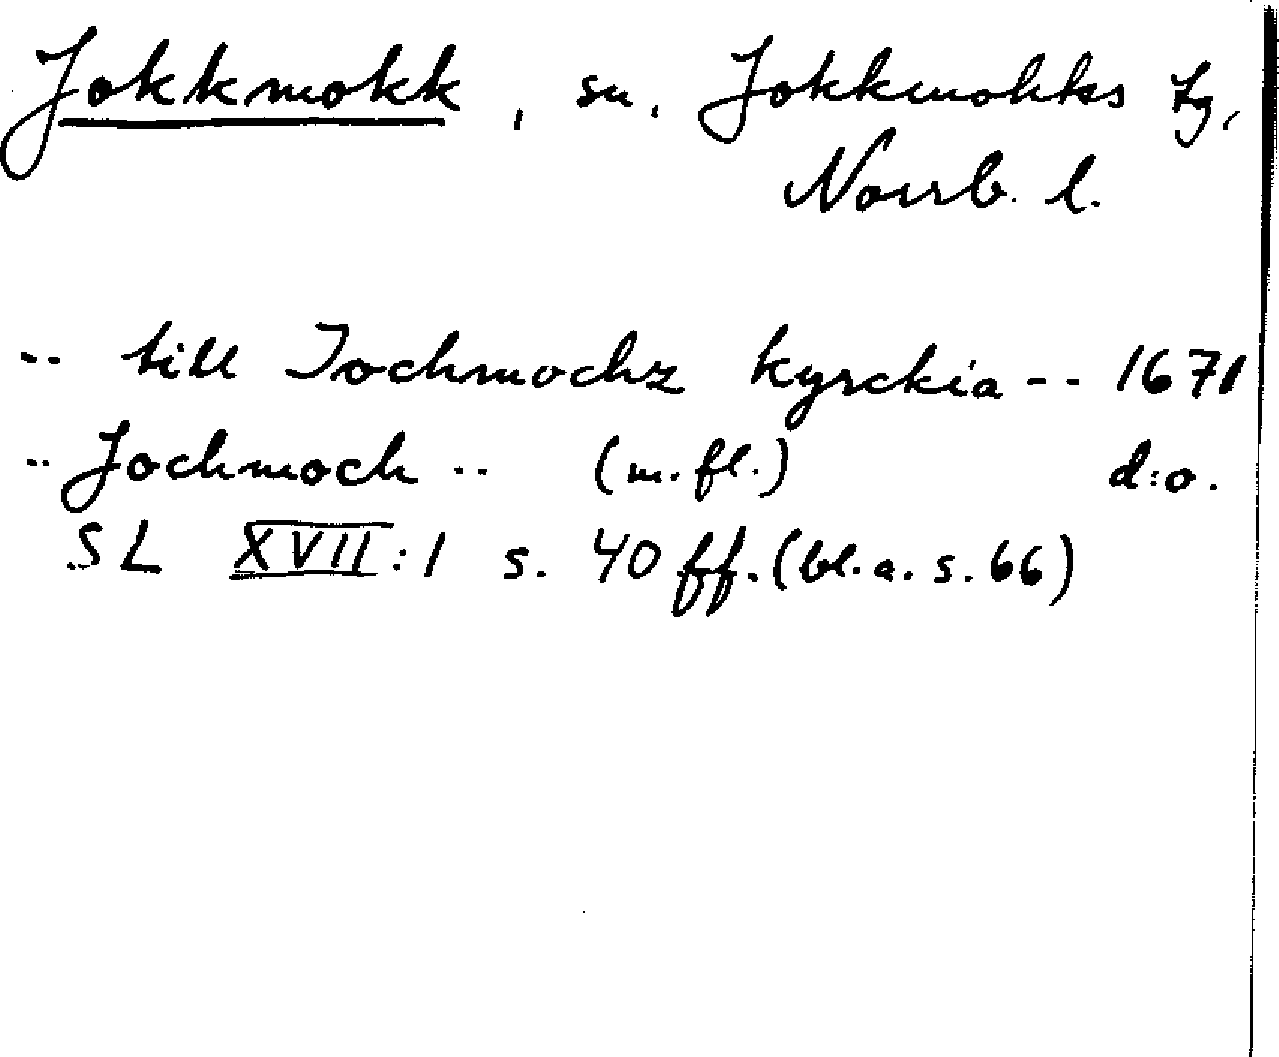 Jokkmokk, sn. Jokkmokks tg,
Norrb. l.
-- till Jochmochz kyrckia -- 1671
-- Jochmoch -- (m.fl.) d:o.
SL XVII:1 s. 40 ff. (bl.a. s. 66)